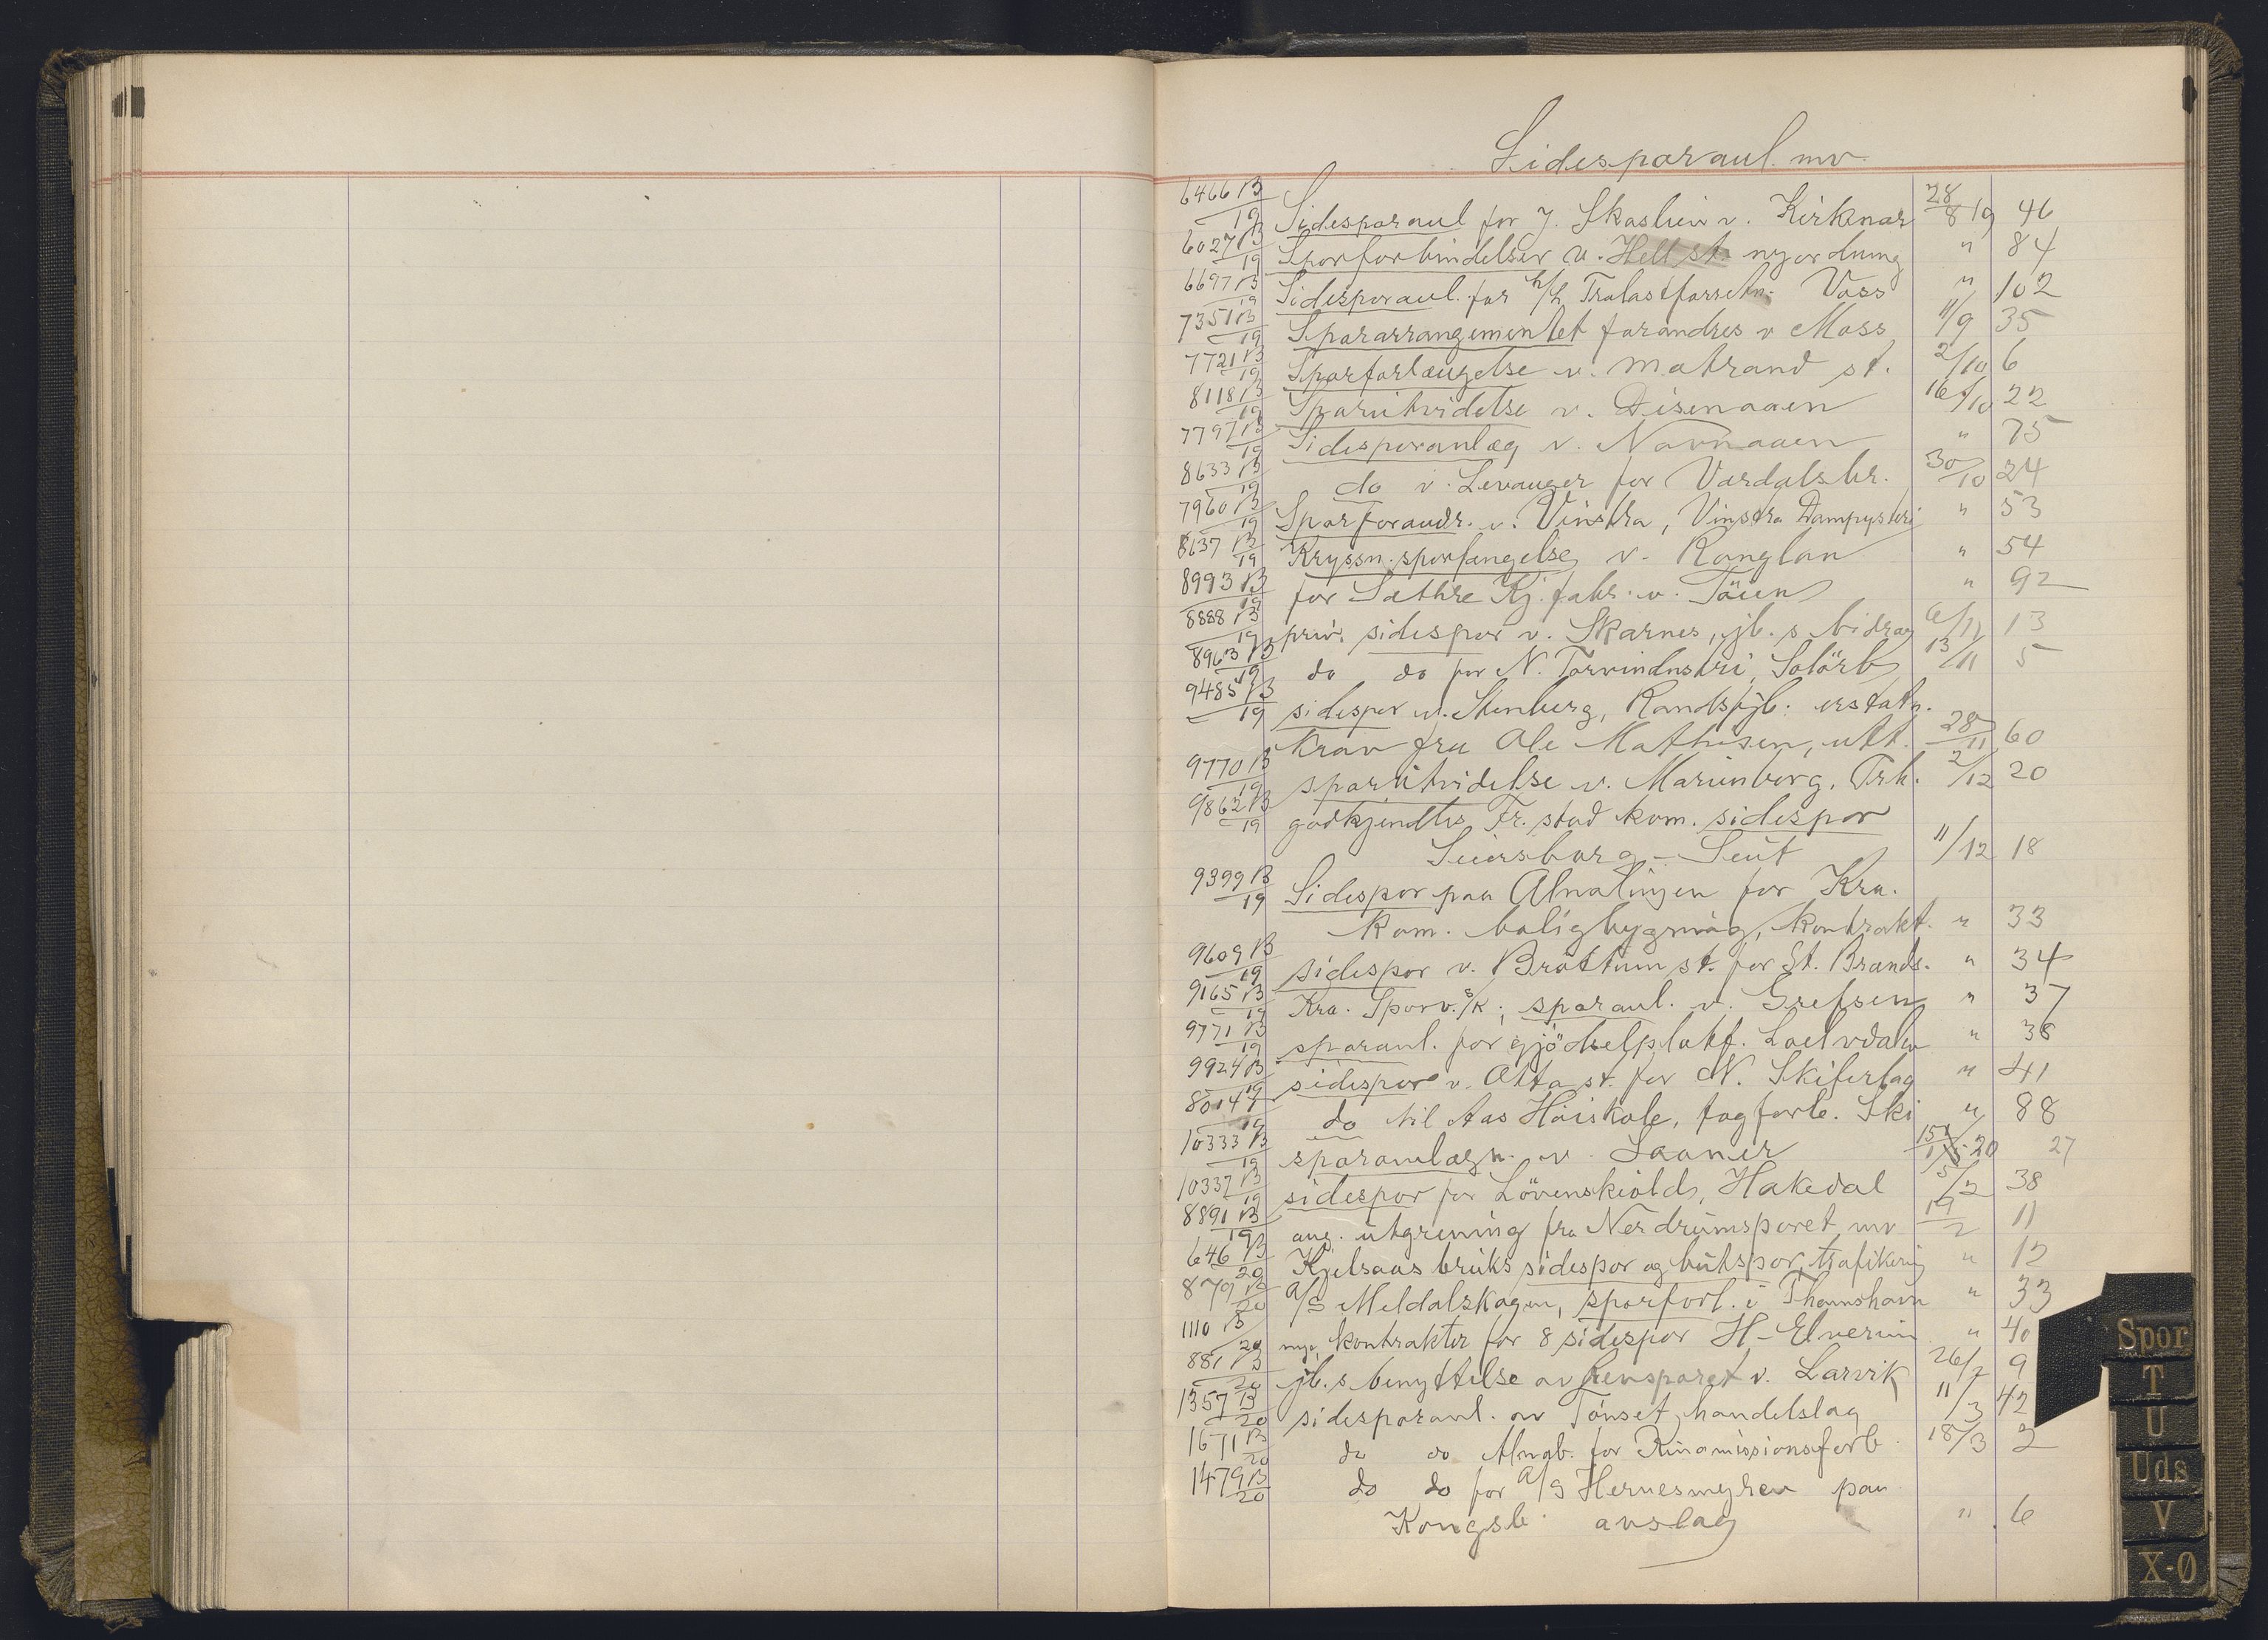 Sidesporanl. mv.
6466 B/19 Sidesporanl for J. Skaslien v. Kirkenær 28/8 19 46
6027 B/19 Sporforbindelser v. Hell st. nyordning " 84
6697 B/19 Sidesporanl. for Trælastforretn. Voss " 102
7351 B/19 Spararrangementet forandres v Moss 11/9 35
7721 B/19 Sporforlængelse v. Matrand st. 2/10 6
8118 B/19 Sporutvidelse v. Disenaaen 16/10 22
7797 B/19 Sidesporanlæg v. Navnaaen " 75
8633 B/19 do v. Levanger for Værdalsbr. 30/10 24
7960 B/19 Sporforandr. v. Vinstra, Vinstra Dampysteri " 53
8637 B/19 Kryssn.sporlængelse v. Ronglan " 54
8993 B/19 for Sæthre Kj. fabr. v. Töien " 92
8888 B/19 priv. sidespor v. Skarnes, jb. s bidrag 6/11 13
8963 B/19 do do for N. Torvindustri, Solörb 13/11 5
9485 B/19 sidespor v. Stenberg, Randsfjb. erstatn.
krav fra Ole Mathisen, utt. 28/11 60
9770 B/19 sporutvidelse v. Marienborg, Trh. 2/12 20
9862 B/19 godkjendtes Fr.stad kom. sidespor
Seiersborg - Seut 11/12 18
9399 B/19 Sidespor paa Alnalinjen for Kra.
Kom. boligbygning, kontrakt. " 33
9609 B/19 sidespor v. Brøttum st. for St. Brænds. " 34
9165 B/19 Kra. Sporv. s/k; sporanl. v. Grefsen " 37
9771 B/19 sporanl. for gjödselplatf. Loelvdalen " 38
9924 B/19 sidespor v. Otta st. for N. Skiferlag " 41
8014 /19 do til Aas Höiskole, togforb. Ski " 88
10333 B/19 sporanlægn. v. Saaner 15/1 20 27
10337 B/19 sidespor for Lövenskiold, Hakedal 5/2 38
8891 B/19 ang. utgrening fra Nerdrumsporet mv 19/2 11
646 B/20 Kjelsaas bruks sidespor og buttspor, trafikering " 12
879 B/20 A/S Meldalskogen, sporforl. i Thamshavn " 33
1110 B/20 nye kontrakter for 8 sidespor H-Elverum " 40
881 B/20 jb.s benyttelse av v. Larvik 26/2 9
1357 B/20 sidesporanl. av Tönset handelslag 11/3 42
1671 B/20 do do Alnab. for Kinamissionsforb. 18/3 2
1479 B/20 do do for A/S Hernesmyren paa
Kongsb. avslag " 6
Spor
T
U
Uds
V
X-Ø